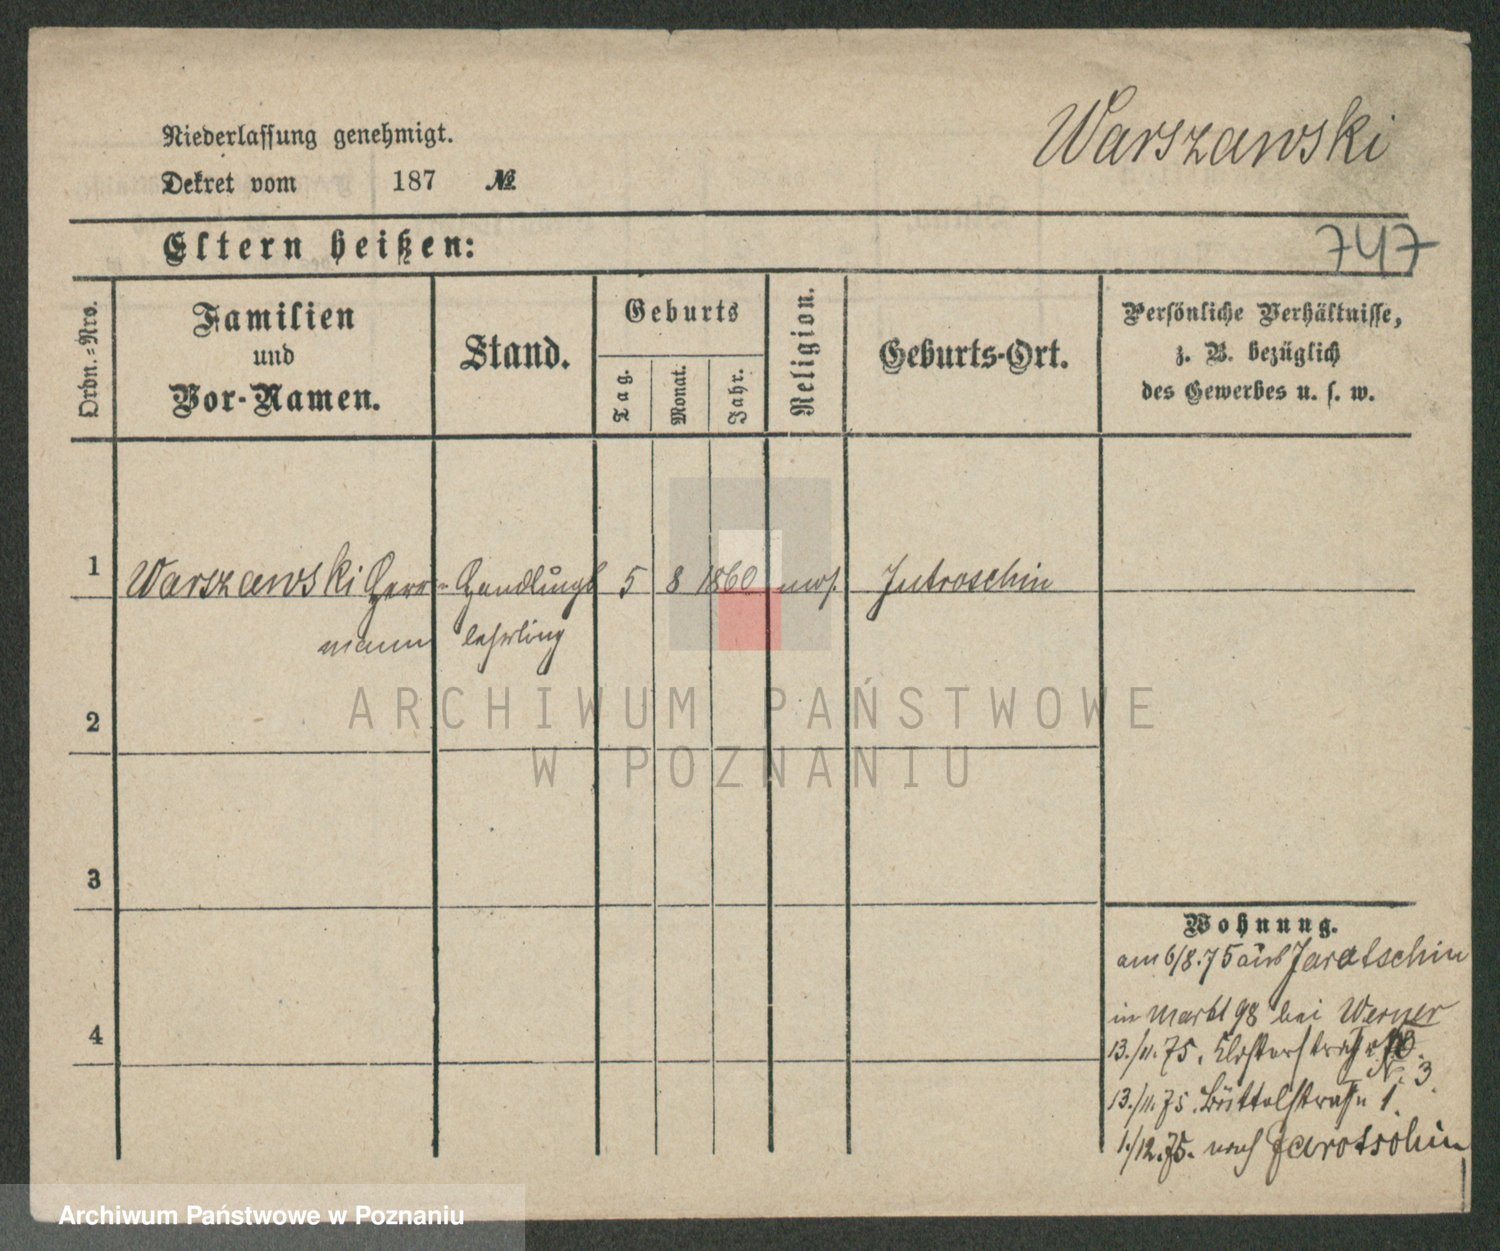 Niederlassung genehmigt.
Dekret vom 187 №
Warszawski
Eltern heißen:
747
Ordn.=Nro.
Familien
und
Vor-Namen.
Stand.
Geburts
Tag.
Monat.
Jahr.
Religion.
Geburts-Ort.
Persönliche Verhältnisse,
z. B. bezüglich
des Gewerbes u. s. w.
1 Warszawski Herr- Handlungs 5 8 1860 mos. Jutroschin
mann lehrling
2
3
4
Wohnung.
am 6/8.75 aus Jarotschin
in Markt 98 bei Werner
13./11.75. Klosterstraße
N. 3.
13./11.75. Büttelstraße 1.
1./12.75. nach Jarotschin
ARCHIWUM PAŃSTWOWE
W POZNANIU
Archiwum Państwowe w Poznaniu